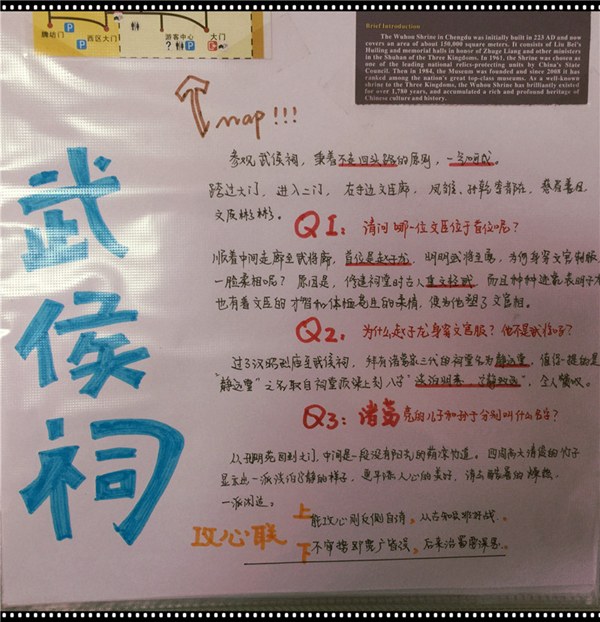 牌坊门
西区大门
游客中心
大门
Brief Introduction
The Wuhou Shrine in Chengdu was initially built in 223 AD and now
covers an area of about 150,000 square meters. It consists of Liu Bei's
Huiling and memorial halls in honor of Zhuge Liang and other ministers
in the Shuhan of the Three Kingdoms. In 1961, the Shrine was chosen as
one of the leading national relics-protecting units by China's State
Council. Then in 1984, the Museum was founded and since 2008 it has
ranked among the nation's great top-class museums. As a well-known
shrine to the Three Kingdoms, the Wuhou Shrine has brilliantly existed
for over 1,780 years, and accumulated a rich and profound heritage of
Chinese culture and history.
map!!!
武侯祠
参观武侯祠,秉着不走回头路的原则,一气呵成。
跨过大门,进入二门,右手边文臣廊,凤雏、孙乾等都在,慈眉善目
文质彬彬。
Q1:请问哪一位文臣位于首位呢?
顺着中间走廊至武将廊,首位是赵子龙,明明武将至尊,为何身穿文官制服,
一脸柔相呢?原因是,修建祠堂时古人重文轻武,而且种种迹象表明子龙
也有着文臣的才智和体恤苍生的柔情,便为他塑了文官相。
Q2:为什么赵子龙身穿文官服?他不是武将吗?
过了汉昭烈庙至武侯祠,拜有诸葛家三代的祠堂名为静远堂,值得一提的是
"静远堂"之名取自祠堂顶梁上刻八字"淡泊明志,宁静致远",令人赞叹。
Q3:诸葛亮的儿子和孙子分别叫什么名字?
从孔明苑回到大门,中间是一段没有阳光的荫凉竹道。四周高大清瘦的竹子
显示出一派淡泊宁静的样子,更平添人心的美好,消去酷暑的燥热
一派闲适。
攻心联
上 能攻心则反侧自消,从古知兵非好战。
下 不审势即宽严皆误,后来治蜀要深思。